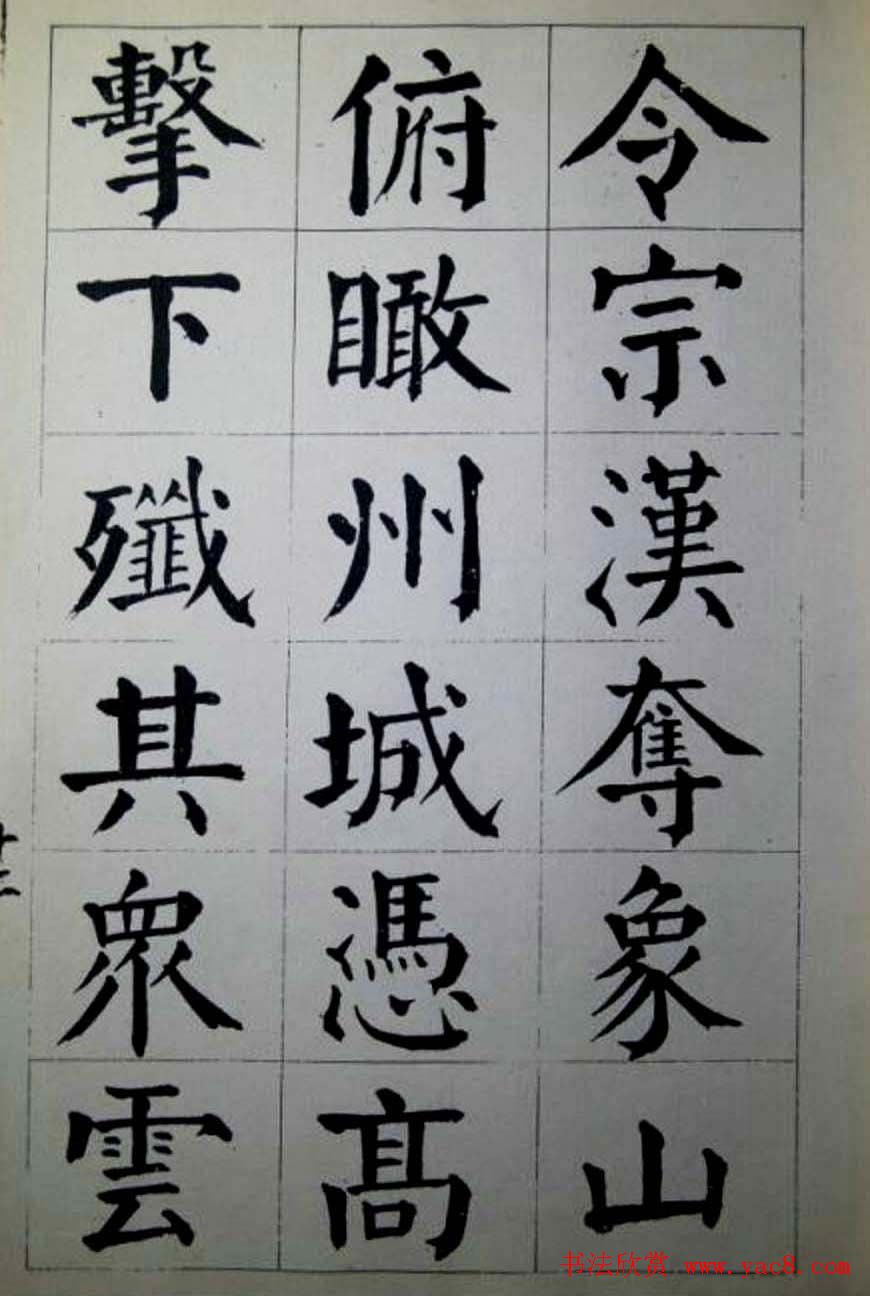 令宗漢奪象山
俯瞰州城憑高
擊下殲其衆雲
书法欣赏 www.yac8.com